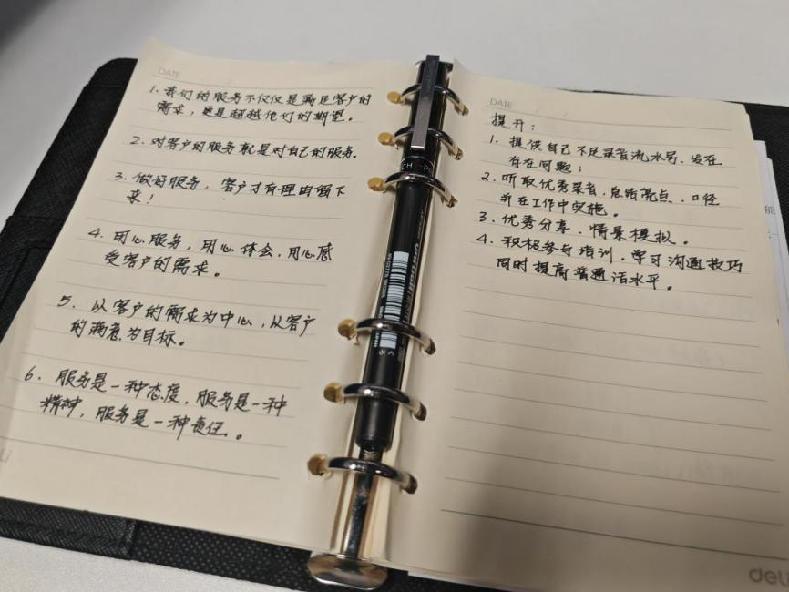 DATE
1. 我们的服务不仅仅是满足客户的
需求，更是超越他们的期望。
2. 对客户的服务就是对自己的服务.
3. 做好服务，客户才有理由留下
来！
4. 用心服务，用心体会，用心感
受客户的需求。
5. 以客户的需求为中心，以客户
的满意为目标。
6. 服务是一种态度，服务是一种
精神，服务是一种责任。
DATE
提升：
1. 提供自己不足录音流水号，
存在问题；
2. 听取优秀录音，总结亮点、口径
并在工作中实施。
3. 优秀分享，情景模拟。
4. 积极参与培训，学习沟通技巧
同时提高普通话水平。
deli